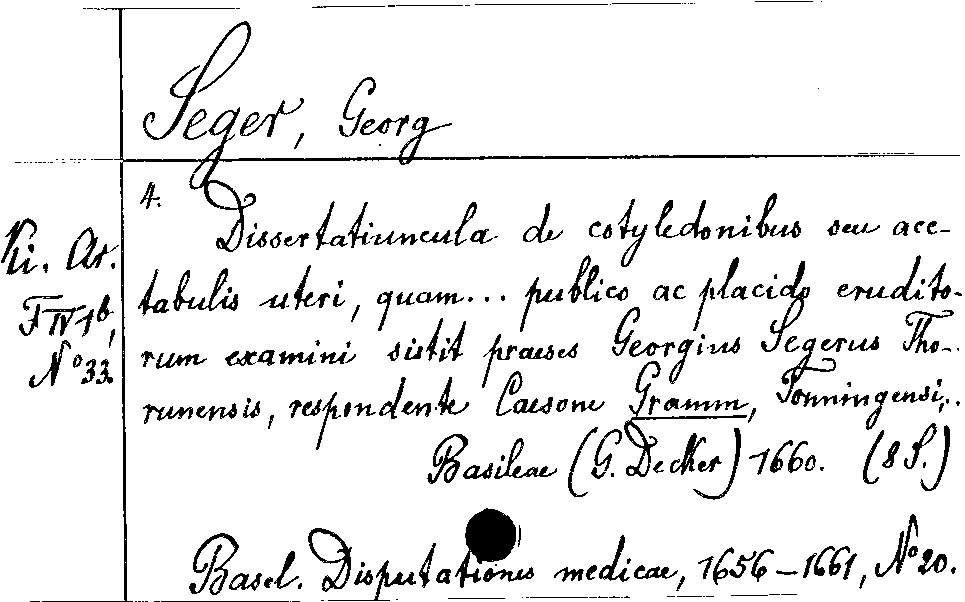 Seger, Georg
4.
Dissertatiuncula de cotyledonibus seu ace-
Ki. Ar. tabulis uteri, quam... publico ac placido erudito-
F IV 1b, rum examini sistit praeses Georgius Segerus Tho-
No 33. runensis, respondente Caesone Gramm, Tonningensi,.
Basileae (G. Decker) 1660. (8 S.)
Basel. Disputationes medicae, 1656-1661, No 20.